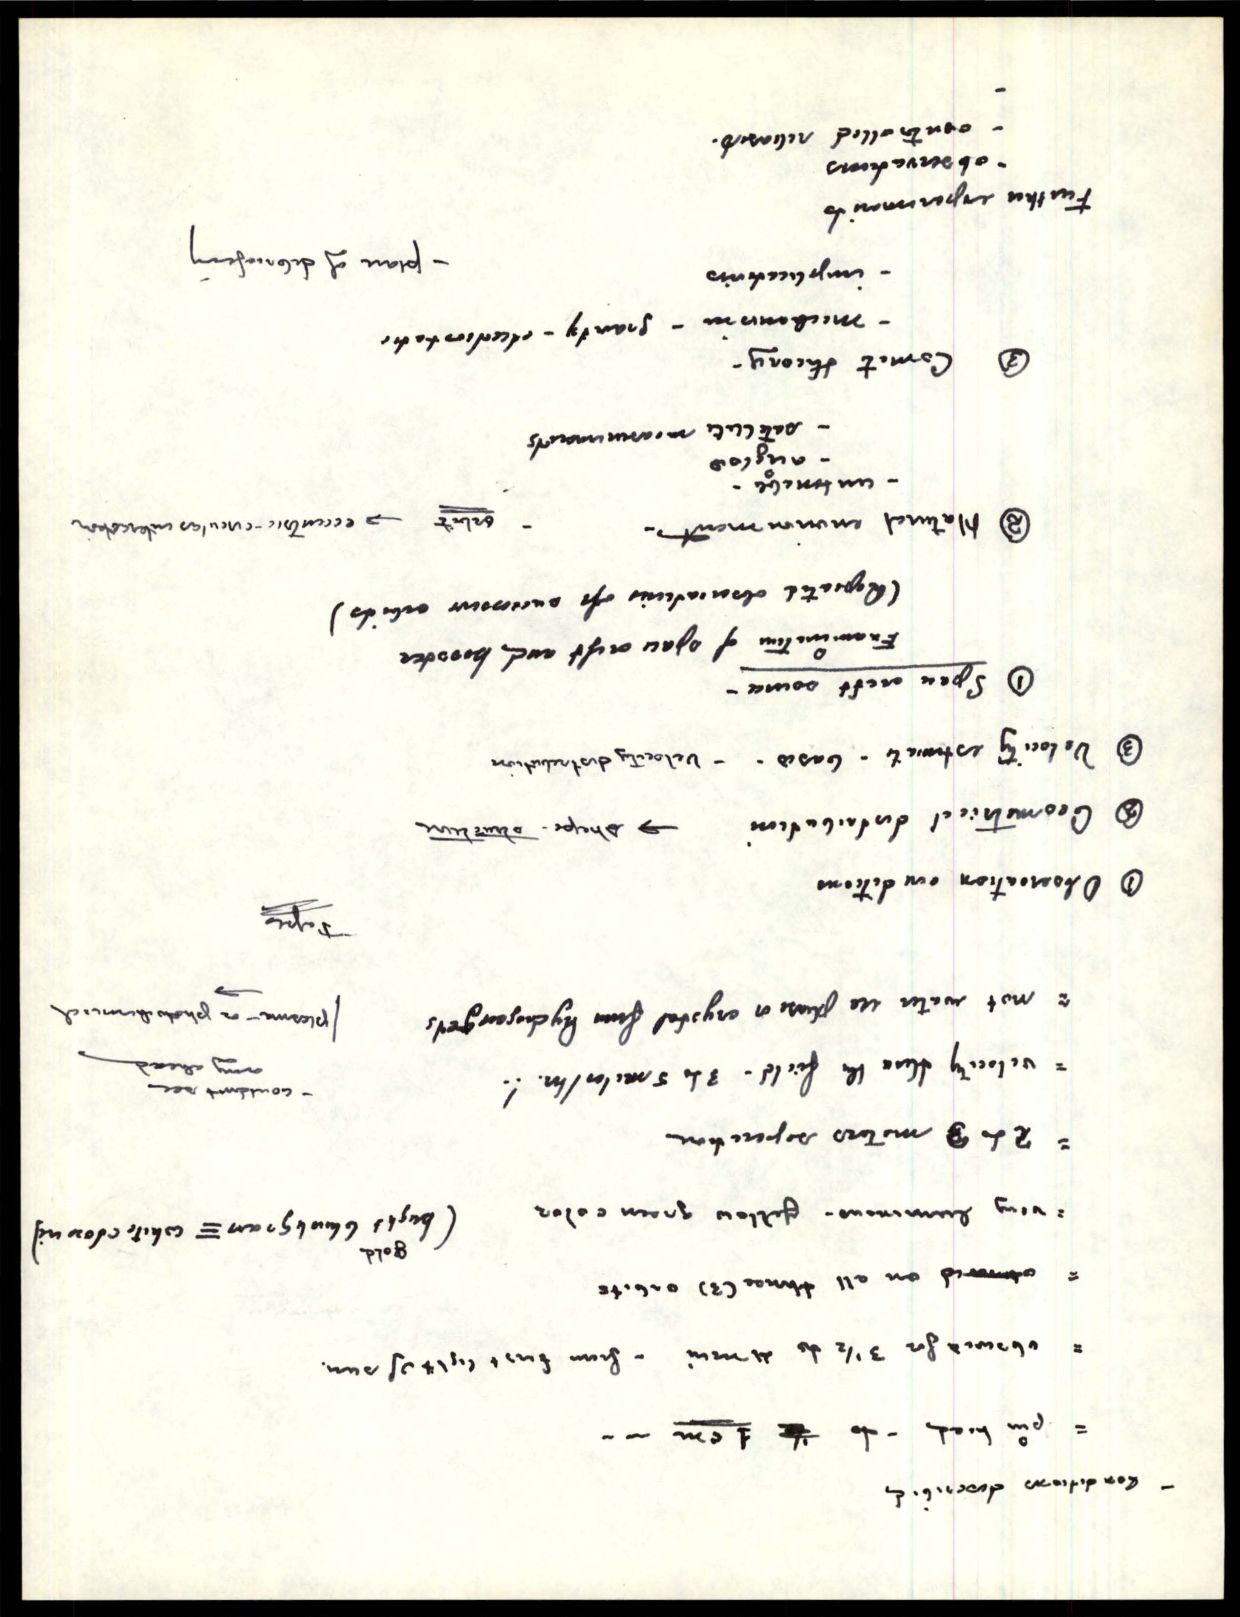 - Conditions described
= pin head - to 1 cm ~ -
= observed for 3 1/2 to 4 min - from first light of sun.
= on all three (3) orbits
= very luminous - yellow green color (bright gold ≡ white clouds
= 2 to 3 meters separation
= velocity thru the field - 3 to 5 miles/hr. !. - couldn't see any ahead
= not water ice phase or crystal from hydrogen jets plasma - or photochemical
Tapes
① Observation conditions
② Geometrical distribution → shape - structure
③ Velocity estimate - basis - - velocity distribution
① Space craft source -
Examination of space craft and booster
(Repeated observations of successive orbits)
② Natural environment - - orbit → eccentric - circular intersection
- airglow
- satellite measurements
③ Comet theory -
- Mechanism - gravity - electrostatic
- implications - plan of debriefing
Further experiments
- observations
- controlled releases.
-